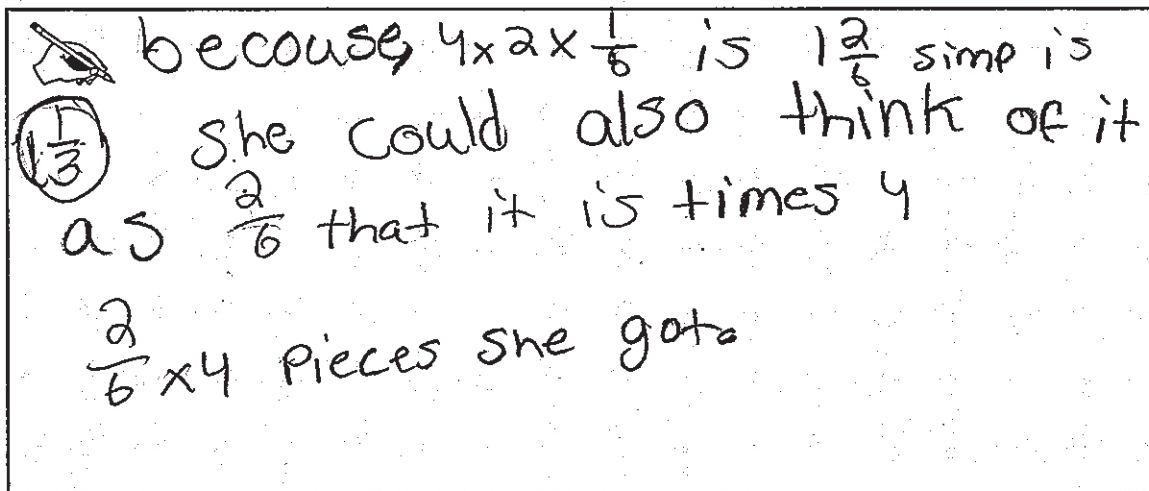 becouse, 4x2x 1/6 is 1 2/6 simp is
1 1/3 she could also think of it
as 2/6 that it is times 4
2/6 x4 pieces she got.